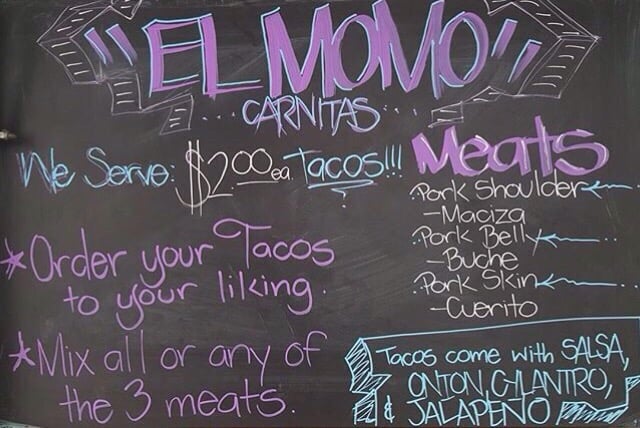 "EL MOMO"
CARNITAS
We Serve: $2.00 ea. Tacos!!!
★Order your Tacos
to your liking.
★Mix all or any of
the 3 meats.
Meats
Pork Shoulder
-Maciza
Pork Belly
-Buche
Pork Skin
-Cuerito
Tacos come with SALSA,
ONION, CILANTRO,
& JALAPEÑO